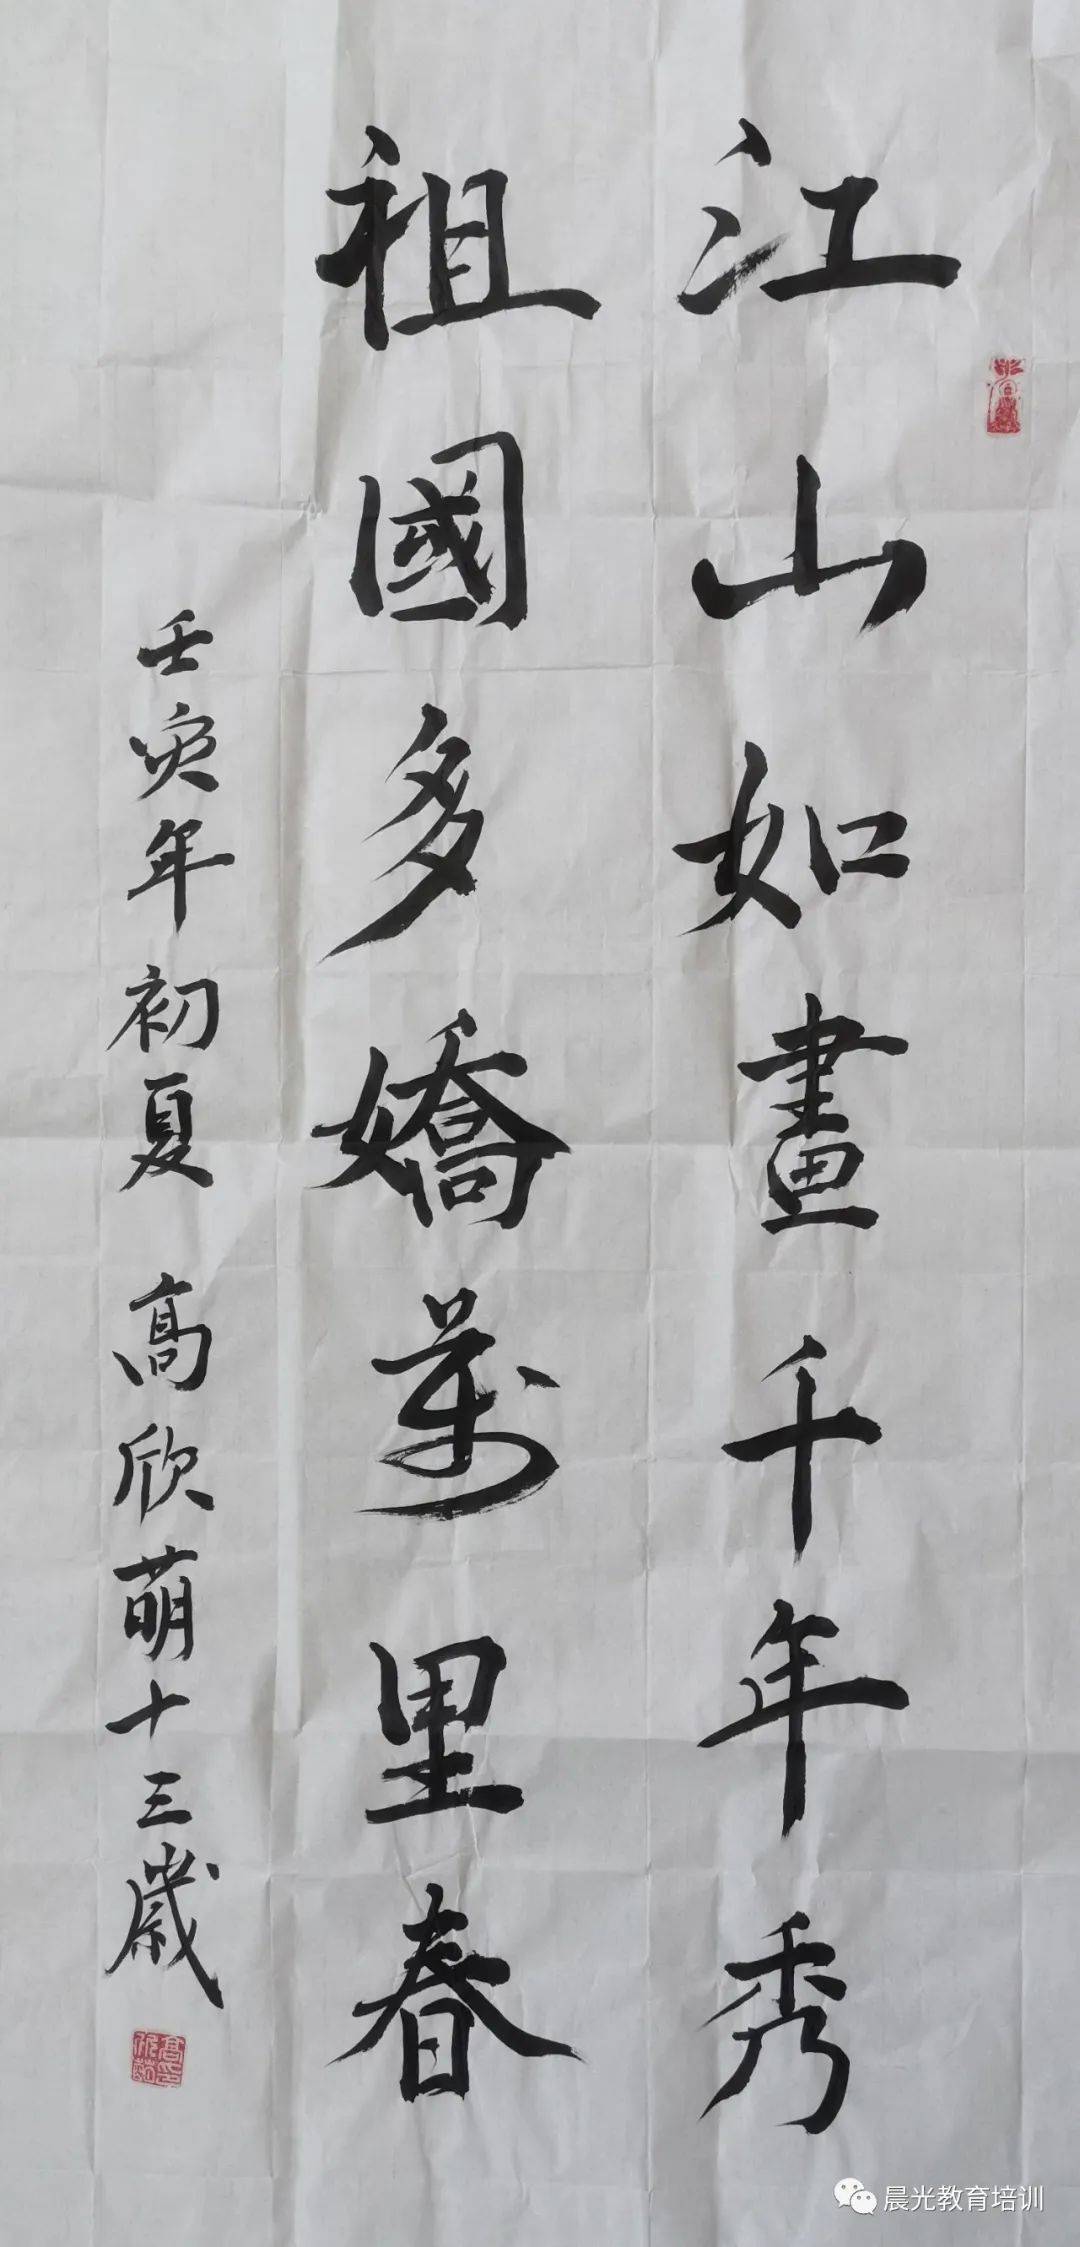 江山如畫千年秀
祖國多嬌萬里春
壬寅年初夏 高欣萌十三歲
晨光教育培训